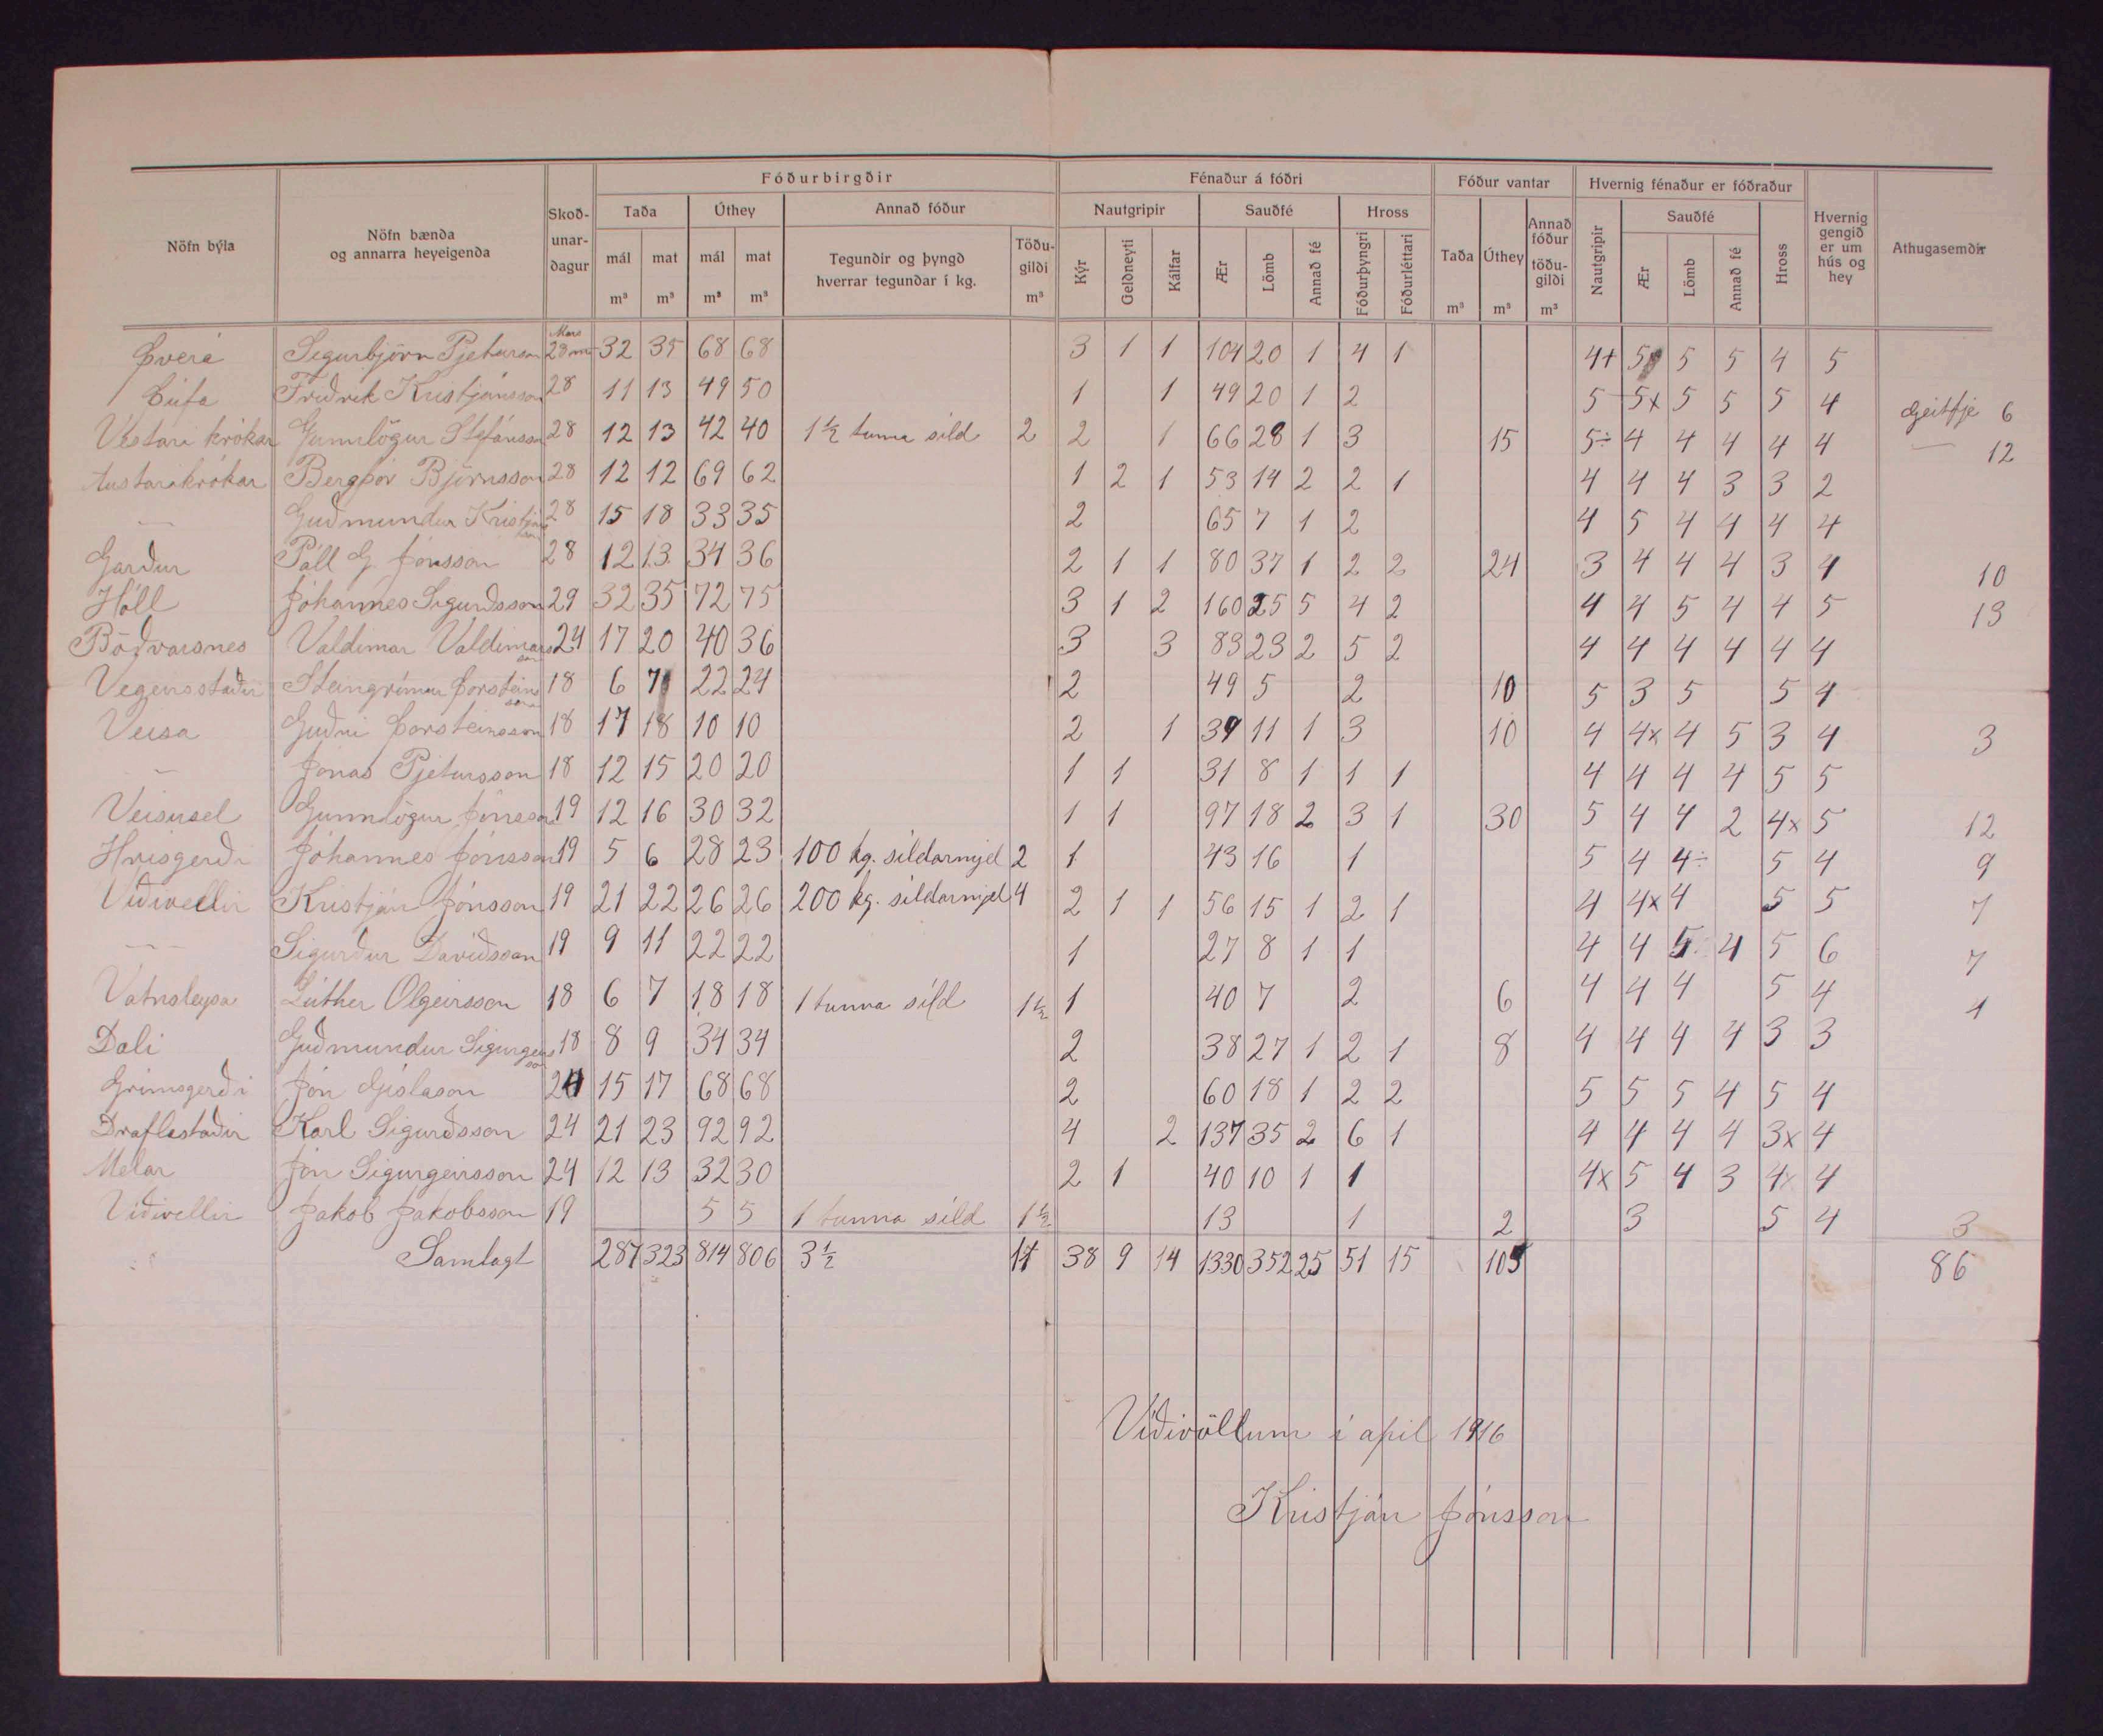 Fóðurbirgðir Fénaður á fóðri Fóður vantar Hvernig fénaður er fóðraður
Nöfn býla Nöfn bænda og annarra heyeigenda Skoð-unar-dagur Taða Úthey Annað fóður Nautgripir Sauðfé Hross Taða Úthey Annað fóður töðu-gildi Nautgripir Sauðfé Hross Hvernig gengið er um hús og hey Athugasemdir
mál mat mál mat Tegundir og þyngd hverrar tegundar í kg. Töðu-gildi Kýr Geldneyti Kálfar Ær Lömb Annað fé Fóðurþyngri Fóðurléttari Ær Lömb Annað fé
m³ m³ m³ m³ m³ m³ m³ m³
Þverá Sigurbjörn Pjetursson Mars 28 32 35 68 68 3 1 1 104 20 1 4 1 4+ 5 5 5 4 5
Þúfa Friðrik Kristjánsson 28 11 13 49 50 1 1 49 20 1 2 5 5x 5 5 5 4 Geitfje 6
Vestari krókar Gunnlögur Stefánsson 28 12 13 42 40 1½ tunna síld 2 2 1 66 28 1 3 15 5÷ 4 4 4 4 4 — 12
Austarikrókar Bergþór Björnsson 28 12 12 69 62 1 2 1 53 14 2 2 1 4 4 4 3 3 2
— Guðmundur Kristjánsson 28 15 18 33 35 2 65 7 1 2 4 5 4 4 4 4
Garður Páll G. Jónsson 28 12 13 34 36 2 1 1 80 37 1 2 2 24 3 4 4 4 3 4 10
Hóll Jóhannes Sigurðsson 29 32 35 72 75 3 1 2 160 25 5 4 2 4 4 5 4 4 5 13
Böðvarsnes Valdimar Valdimarsson 24 17 20 40 36 3 3 83 23 2 5 2 4 4 4 4 4 4
Vegeirsstaðir Steingrímur Þorsteinsson 18 6 7 22 24 2 49 5 2 10 5 3 5 5 4
Veisa Guðni Þorsteinsson 18 17 18 10 10 2 1 39 11 1 3 10 4 4x 4 5 3 4 3
— Jónas Pjetursson 18 12 15 20 20 1 1 31 8 1 1 1 4 4 4 4 5 5
Veisusel Gunnlögur Jónsson 19 12 16 30 32 1 1 97 18 2 3 1 30 5 4 4 2 4x 5 12
Hrísgerði Jóhannes Jónsson 19 5 6 28 23 100 kg. síldarmjel 2 1 43 16 1 5 4 4÷ 5 4 9
Víðivellir Kristján Jónsson 19 21 22 26 26 200 kg. síldarmjel 4 2 1 1 56 15 1 2 1 4 4x 4 5 5 7
— Sigurður Davíðsson 19 9 11 22 22 1 27 8 1 1 4 4 5÷ 4 5 6 7
Vatnsleysa Lúther Olgeirsson 18 6 7 18 18 1 tunna síld 1½ 1 40 7 2 6 4 4 4 5 4 4
Dali Guðmundur Sigurgeirsson 18 8 9 34 34 2 38 27 1 2 1 8 4 4 4 4 3 3
Grímsgerði Jón Gíslason 24 15 17 68 68 2 60 18 1 2 2 5 5 5 4 5 4
Draflastaðir Karl Sigurðsson 24 21 23 92 92 4 2 137 35 2 6 1 4 4 4 4 3x 4
Melar Jón Sigurgeirsson 24 12 13 32 30 2 1 40 10 1 1 4x 5 4 3 4x 4
Víðivellir Jakob Jakobsson 19 5 5 1 tunna síld 1½ 13 1 2 3 5 4 3
Samlagt 287 323 814 806 3½ 11 38 9 14 1330 352 25 51 15 105 86
Víðivöllum í apil 1916
Kristján Jónsson